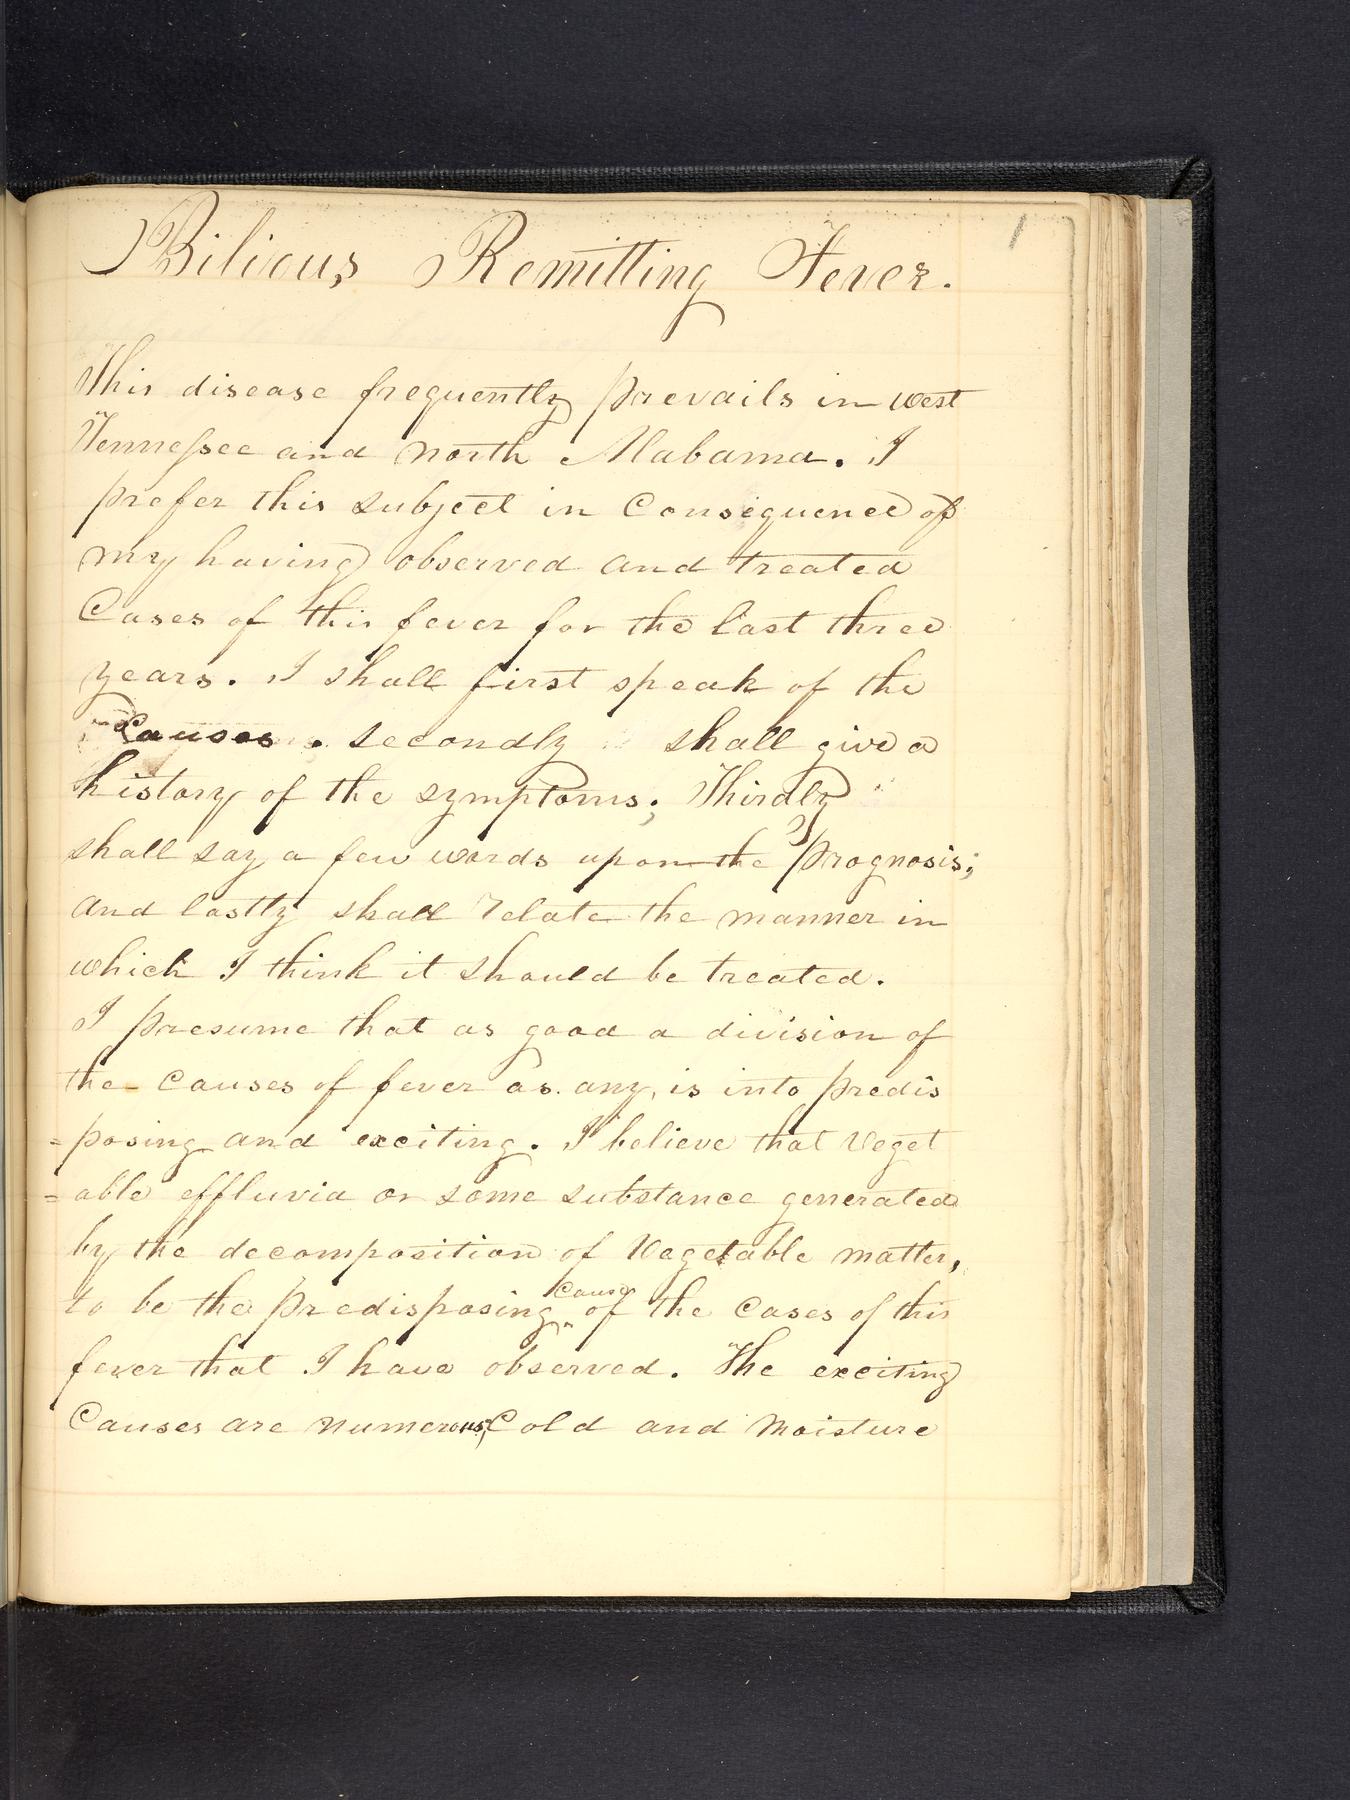 1
Bilious Remitting Fever.
This disease frequently prevails in west
Tenneſsee and North Alabama. I
prefer this subject in Consequence of
my having observed and treated
Cases of this fever for the last three
years. I shall first speak of the
Causes. secondly shall give a
history of the symptoms; Thirdly
shall say a few words upon the Prognosis;
and lastly shall relate the manner in
which I think it should be treated.
I presume that as good a division of
the causes of fever as any, is into predis
=posing and exciting. I believe that Veget
=able effluvia or some substance generated
by the decomposition of Vegetable matter,
to be the predisposing Cause of the Cases of this
fever that I have observed. The exciting
Causes are numerous; Cold and Moisture